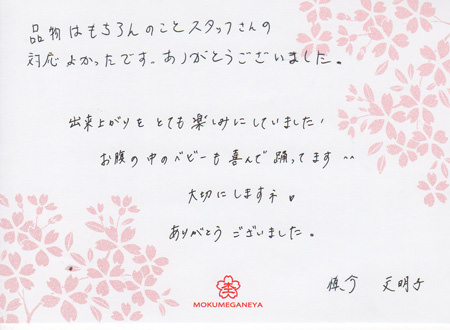 品物はもちろんのことスタッフさんの
対応よかったです。ありがとうございました。
出来上がりをとても楽しみにしていました！
お腹の中のベビーも喜んで踊ってます^^
大切にしますネ。
ありがとうございました。
MOKUMEGANEYA